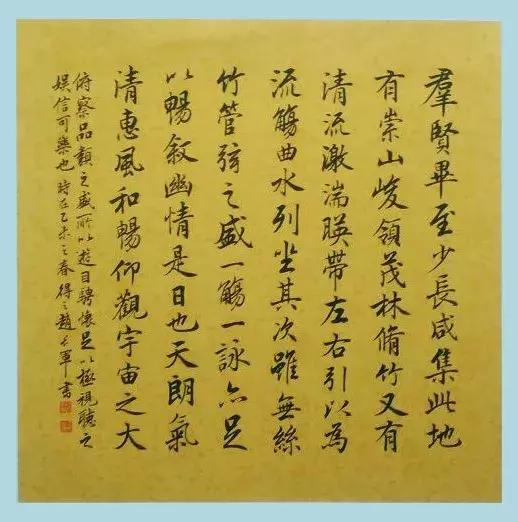 羣賢畢至少長咸集此地
有崇山峻領茂林脩竹又有
清流激湍暎帶左右引以為
流觴曲水列坐其次雖無絲
竹管弦之盛一觴一詠亦足
以暢敘幽情是日也天朗氣
清惠風和暢仰觀宇宙之大
俯察品類之盛所以遊目騁懷足以極視聽之
娛信可樂也 時在乙未之春 得之趙長軍書